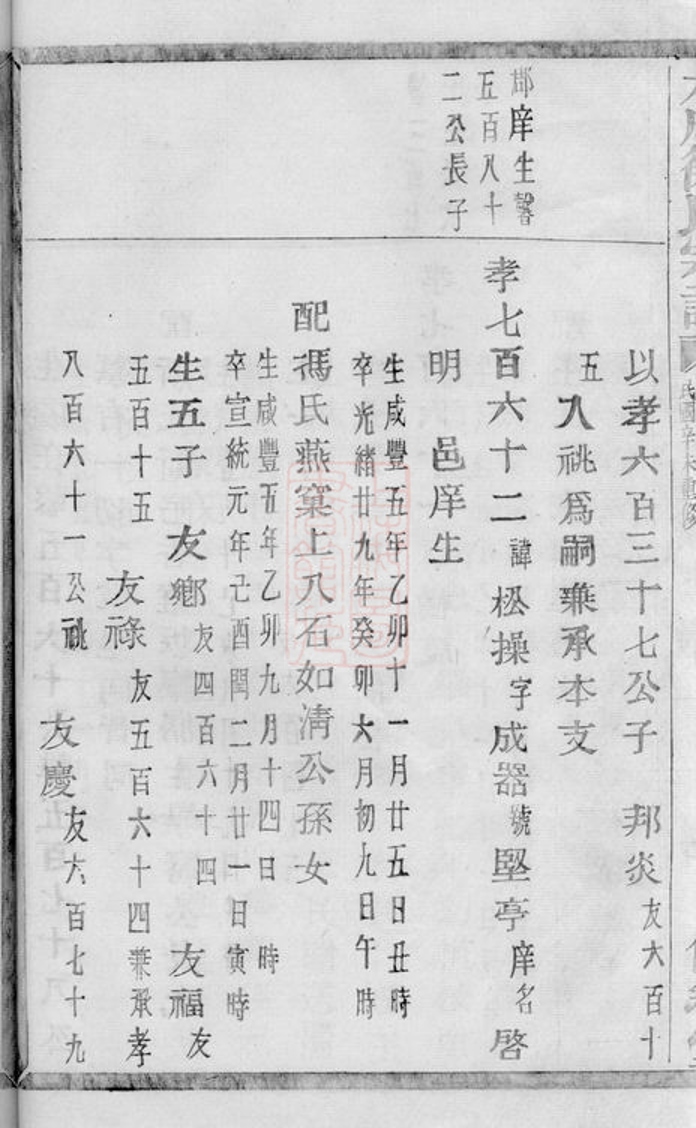 以孝六百三十七公子　邦炎友六百十
五入祧爲嗣兼承本支
郡庠生馨
五百八十
二公長子
孝七百六十二諱松操字成器號堅亭庠名啓
明　邑庠生
生咸豐五年乙卯十一月廿五日丑時
卒光緒廿九年癸卯六月初九日午時
配馮氏燕窠上八石如清公孫女
生咸豐五年乙卯九月十四日　時
卒宣統元年己酉閏二月廿一日寅時
生五子　友鄉友四百六十四　友福友
五百十五　友祿友五百六十四兼承孝
八百六十一公祧　友慶友六百七十九